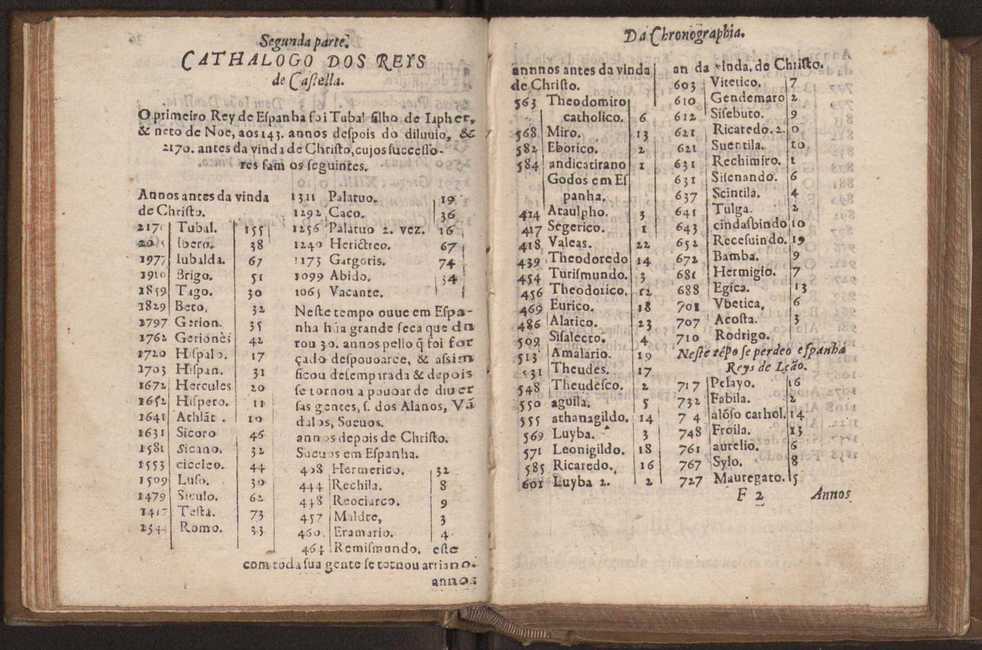 Segunda parte.
CATHALOGO DOS REYS
de Castella.
O primeiro Rey de Espanha foi Tubal filho de Iaphet,
& neto de Noe, aos 143. annos despois do diluuio, &
2170. antes da vinda de Christo, cujos successo-
res sam os seguintes.
Annos antes da vinda
de Christo.
Tubal. 155
Ibero. 38
1977 Iubalda. 67
1910 Brigo. 51
1859 Tago. 30
1829 Beto. 32
1797 Gerion. 35
1762 Geriones 42
1720 Hispalo. 17
1703 Hispan. 31
1672 Hercules 20
1652 Hispero. 11
1641 Athlãt. 10
1631 Sicoro 46
1581 Sicano. 32
1553 ciceleo. 44
1509 Luso. 30
1479 Siculo. 62
Testa. 73
Romo. 33
1311 Palatuo. 19
1292 Caco. 36
1256 Palatuo 2. vez. 16
1240 Herictreo. 67
1173 Gargoris. 74
1099 Abido. 34
1065 Vacante.
Neste tempo ouue em Espa-
nha hũa grande seca que du
rou 30. annos pello q̃ foi for
çado despouoarce, & assim
ficou desempirada & depois
se tornou a pouoar de diuer
sas gentes, s. dos Alanos, Vã
dalos, Sueuos.
annos depois de Christo.
Sueuos em Espanha.
408 Hermerico. 32
444 Rechila. 8
448 Reociarco. 9
457 Maldre, 3
460 Eramario. 4
464 Remismundo. este
com toda sua gente se tornou arriano.
annos
Da Chronographia.
annnos antes da vinda
de Christo.
563 Theodomiro
catholico. 6
568 Miro. 13
582 Eborico. 2
584 andicatirano 1
Godos em Es
panha.
414 Ataulpho. 3
417 Segerico. 1
418 Valeas. 22
439 Theodoredo 14
454 Turismundo. 3
456 Theodorico. 12
469 Eurico. 18
486 Alarico. 23
509 Sisalecto. 4
513 Amalario. 19
531 Theudes. 17
548 Theudesco. 2
550 aguila. 5
555 athanagildo. 14
569 Luyba. 3
571 Leonigildo. 18
585 Ricaredo. 16
601 Luyba 2. 2
an da vinda. de Christo.
603 Vitetico. 7
610 Gendemaro 2
612 Sisebuto. 9
621 Ricatedo. 2. 0
621 Suentila. 10
631 Rechimiro. 1
631 Sisenando. 6
637 Scintila. 4
641 Tulga. 2
643 cindasbindo 10
652 Recesuindo. 19
672 Bamba. 9
681 Hermigio. 7
688 Egica. 13
701 Vbetica. 6
707 Acosta. 3
710 Rodrigo.
Neste tẽpo se perdeo espanha
Reys de Leão.
717 Pelayo. 16
732 Fabila. 2
7 4 alõso cathol. 14
748 Froila. 13
761 aurelio. 6
767 Sylo. 8
727 Mauregato. 5
F 2
Annos